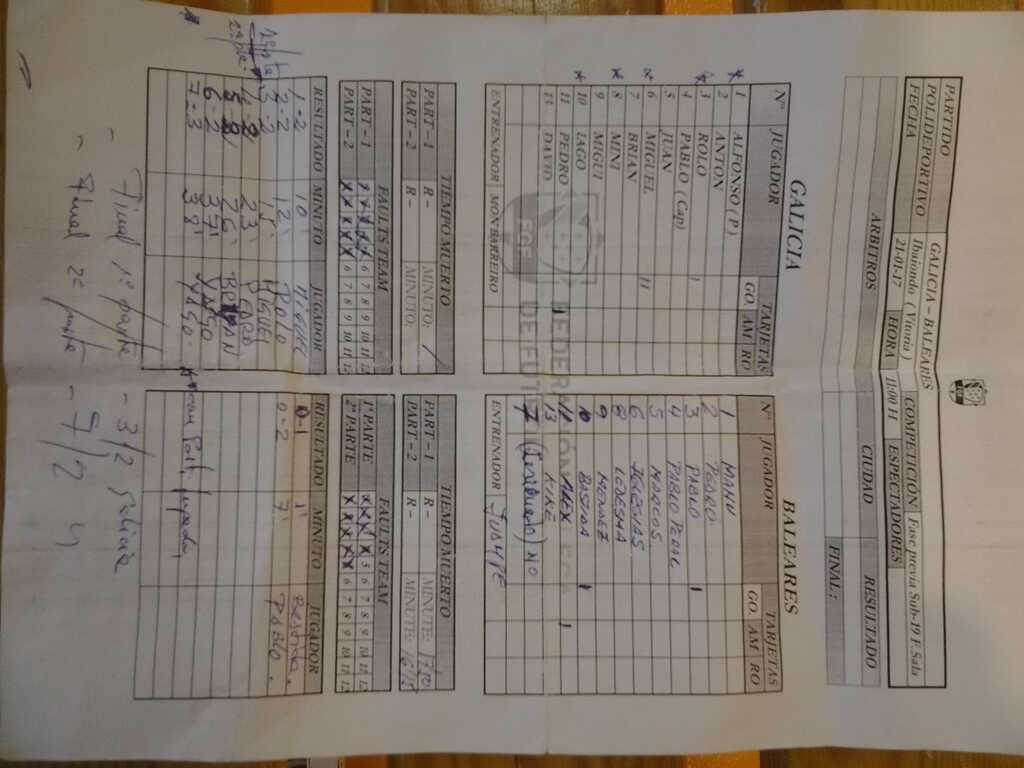 PARTIDO GALICIA – BALEARES COMPETICION Fase previa Sub-19 F. Sala
POLIDEPORTIVO Ibaiondo ( Vitoria ) HORA 11:00 H ESPECTADORES
FECHA 21-01-17
ARBITROS CIUDAD RESULTADO
FINAL :
GALICIA
Nº JUGADOR TARJETAS
GO. AM RO
1 ALFONSO (P)
2 ANTON
3 ROLO
4 PABLO (Cap) 1
5 JUAN
6 MIGUEL
7 BRIAN 11
8 MINI
9 MIGUI
10 IAGO
11 PEDRO
13 DAVID
ENTRENADOR MON BARREIRO
BALEARES
Nº JUGADOR TARJETAS
GO. AM RO
1 MANU
2 PEDRO
3 PABLO 1
4 PABLO PERAL
5 MARCOS
6 IGLESIAS
8 LEDESMA
9 MENDEZ
10 BUSTIDA 1
11 ALEX
13 KIKE 1
NO
ENTRENADOR JUANPE
FEDERACIÓN
DE FÚTBOL
TIEMPO MUERTO
PART – 1 R – MINUTO: /
PART – 2 R – MINUTO:
FAULTS TEAM
PART – 1 X X X X 5 6 7 8 9 10 11 12
PART – 2 X X X X X 6 7 8 9 10 11 12
RESULTADO MINUTO JUGADOR
1-2 10' MIGUEL
2-2 12' ROLO
3-2 MIGUEL
4-2 23' PEDRO
5-2 26' BRIAN
6-2 37' IAGO
7-2 39' IAGO
1ª pte
2ª pte
TIEMPO MUERTO
PART – 1 R – MINUTE:
PART – 2 R – MINUTE:
FAULTS TEAM
1ª PARTE X X X X 5 6 7 8 9 10 11 12
2ª PARTE X X X X X 6 7 8 9 10 11 12
RESULTADO MINUTO JUGADOR
0-1 1'
0-2 7' PABLO.
- Final 1ª parte - 3/2 Galicia
- Final 2ª parte - 7/2 "